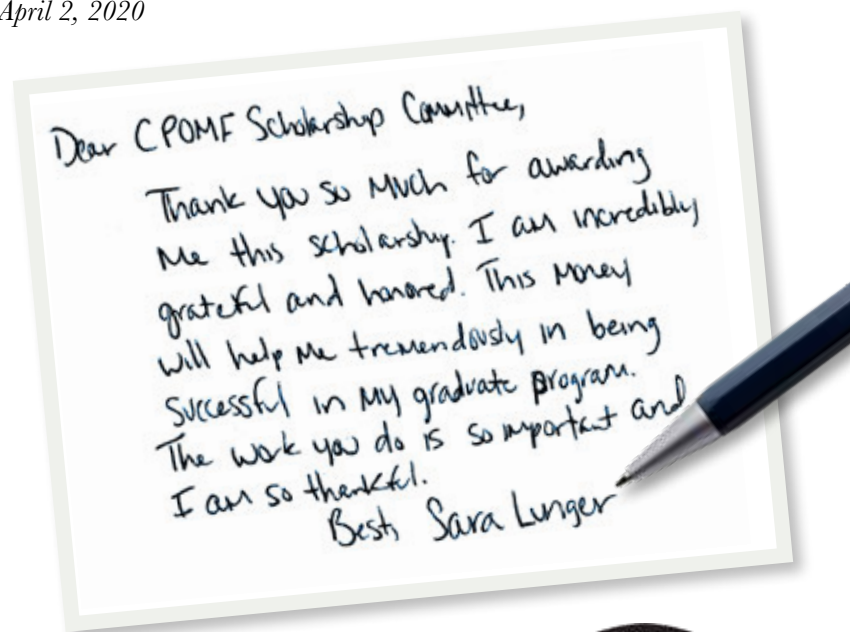 April 2, 2020
Dear CPOMF Scholarship Committee,
Thank you so much for awarding
me this scholarship. I am incredibly
grateful and honored. This money
will help me tremendously in being
successful in my graduate program.
The work you do is so important and
I am so thankful.
Best, Sara Lunger